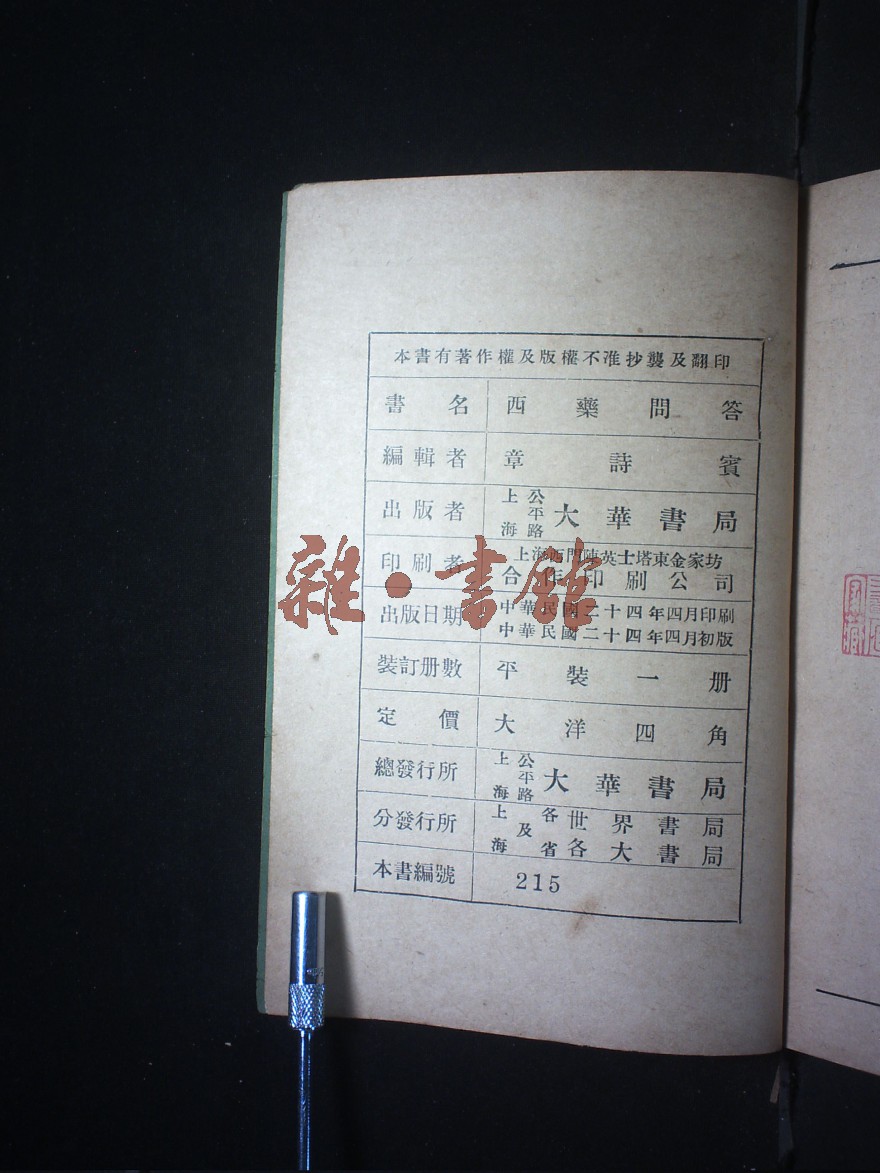 本書有著作權及版權不准抄襲及翻印
書名 西藥問答
編輯者 章詩賓
出版者 上海公平路大華書局
印刷者 上海西門陳英士塔東金家坊
合作印刷公司
出版日期 中華民國二十四年四月印刷
中華民國二十四年四月初版
裝訂册數 平裝一册
定價 大洋四角
總發行所 上海公平路大華書局
分發行所 上海及各省世界書局
各大書局
本書編號 215
雜·書館